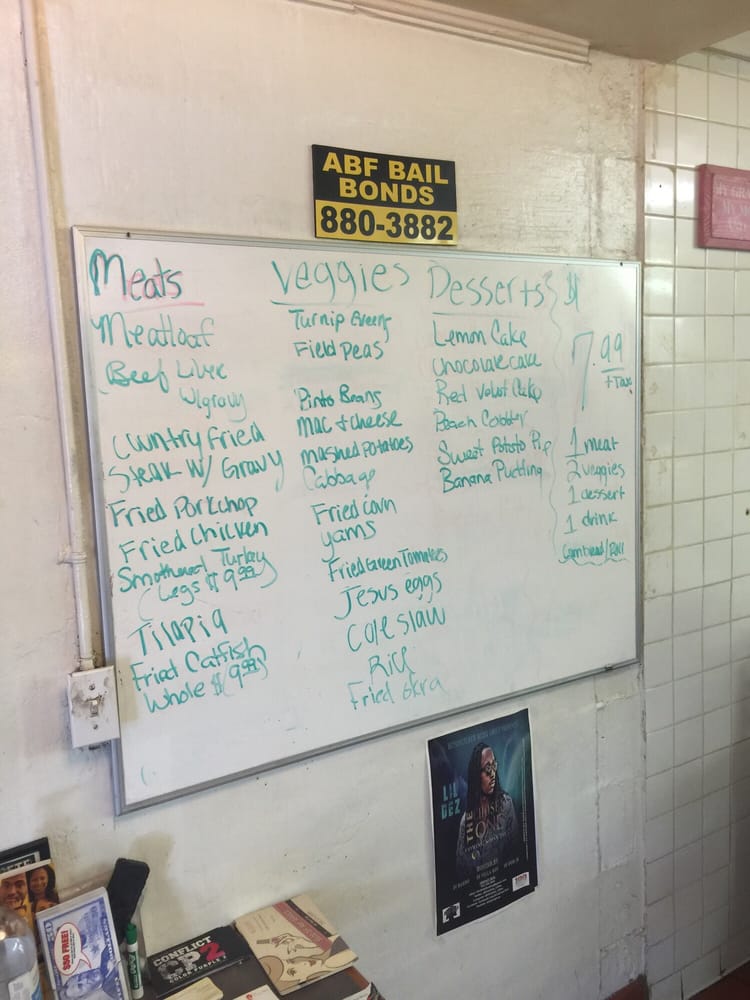 ABF BAIL
BONDS
880-3882
Meats
Meatloaf
Beef Liver
W/gravy
Country Fried
Steak W/ Gravy
Fried Porkchop
Fried Chicken
Smothered Turkey
(Legs $9.99)
Tilapia
Fried Catfish
Whole $(9.99)
Veggies
Turnip Greens
Field Peas
Pinto Beans
Mac + cheese
mashed Potatoes
Cabbage
Fried corn
yams
Fried Green Tomatoes
Jesus eggs
Cole slaw
Rice
Fried Okra
Desserts
Lemon Cake
Chocolate cake
Red Velvet Cake
Peach Cobbler
Sweet Potato Pie
Banana Pudding
$
7.99
+ Tax
1 meat
2 veggies
1 dessert
1 drink
Cornbread/Roll
LIL
DEZ
THE
ONE
$50 FREE!
CONFLICT
CP2
COLOR PURPLE 2